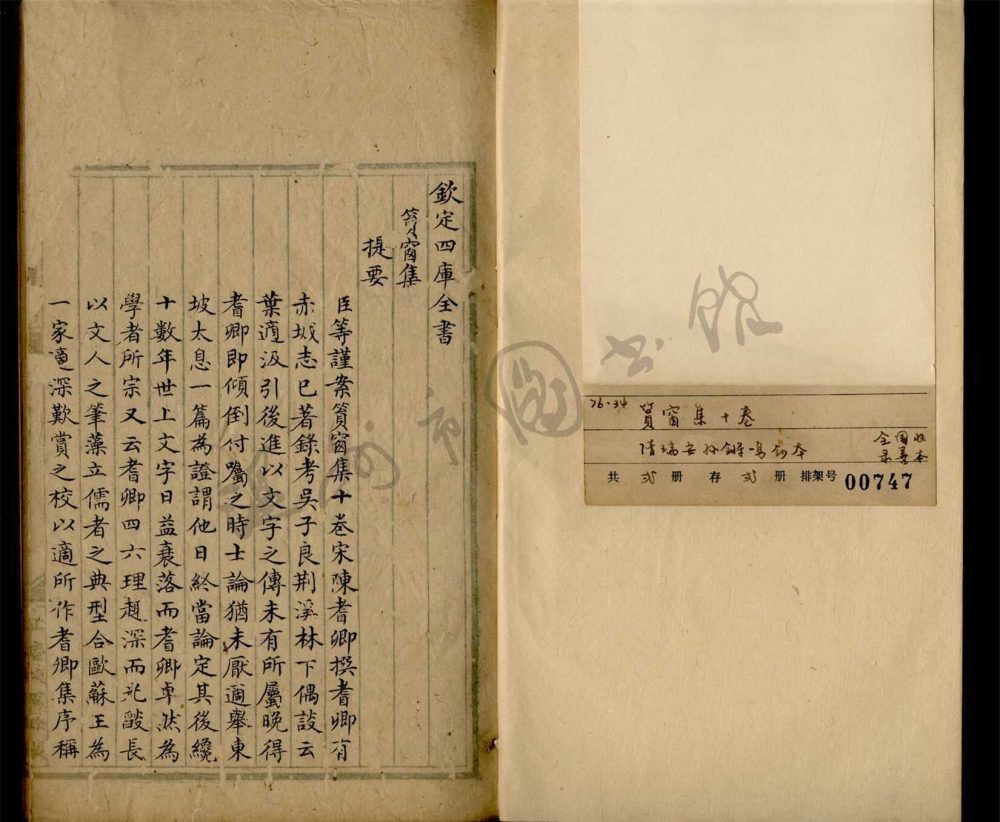 欽定四庫全書
篔窗集
提要
臣等謹案篔窗集十卷宋陳耆卿撰耆卿有
赤城志已著錄考吳子良荆溪林下偶談云
葉適汲引後進以文字之傳未有所屬晚得
耆卿即傾倒付囑之時士論猶未厭適舉東
坡太息一篇為證謂他日終當論定其後纔
十數年世上文字日益衰落而耆卿卓然為
學者所宗又云耆卿四六理趣深而光燄長
以文人之筆藻立儒者之典型合歐蘇王為
一家適深歎賞之校以適所作耆卿集序稱
76·34
篔窗集十卷
清瑞安孙锵鸣钞本
全国收
善本
共 弍 册 存 弍 册 排架号 00747
州 市 圖 书 館